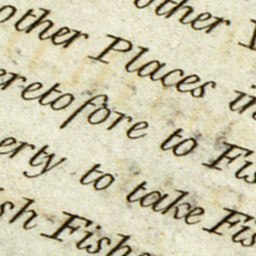 other
other Places in
eretofore to Fis
erty to take Fis
sh Fishe